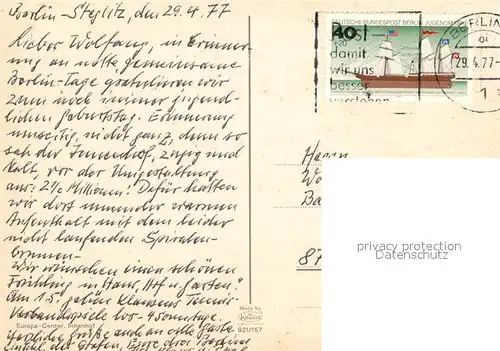 Berlin-Steglitz, den 29.4.77
Lieber Wolfgang, in Erinner-
ung an nette gemeinsame
Berlin-Tage gratulieren wir
zum noch immer jugend-
lichen Geburtstag. Erinnerung
umseitig, nicht ganz, denn so
sah der Innenhof, zugig und
kalt, vor der Umgestaltung
aus: 2½ Millionen! Dafür hatten
wir dort nunmehr warmen
Aufenthalt mit dem leider
nicht laufenden Spiralen-
brunnen-
Wir wünschen einen schönen
Frühling in Haus, Hof u. Garten!
Am 1.5. gehen Klausens Tennis-
Verbandsspiele los - 4 Sonntage.
Herzliche Grüße auch an alle
Europa-Center, Innenhof
Made by
KRÜGER
921/157
DEUTSCHE BUNDESPOST BERLIN JUGENDMARKE
40
+20
Post-
damit
wir uns
besser
verstehen
BERLIN
29.4.77-
1
Herrn
Wo
Ba
87
privacy protection
Datenschutz